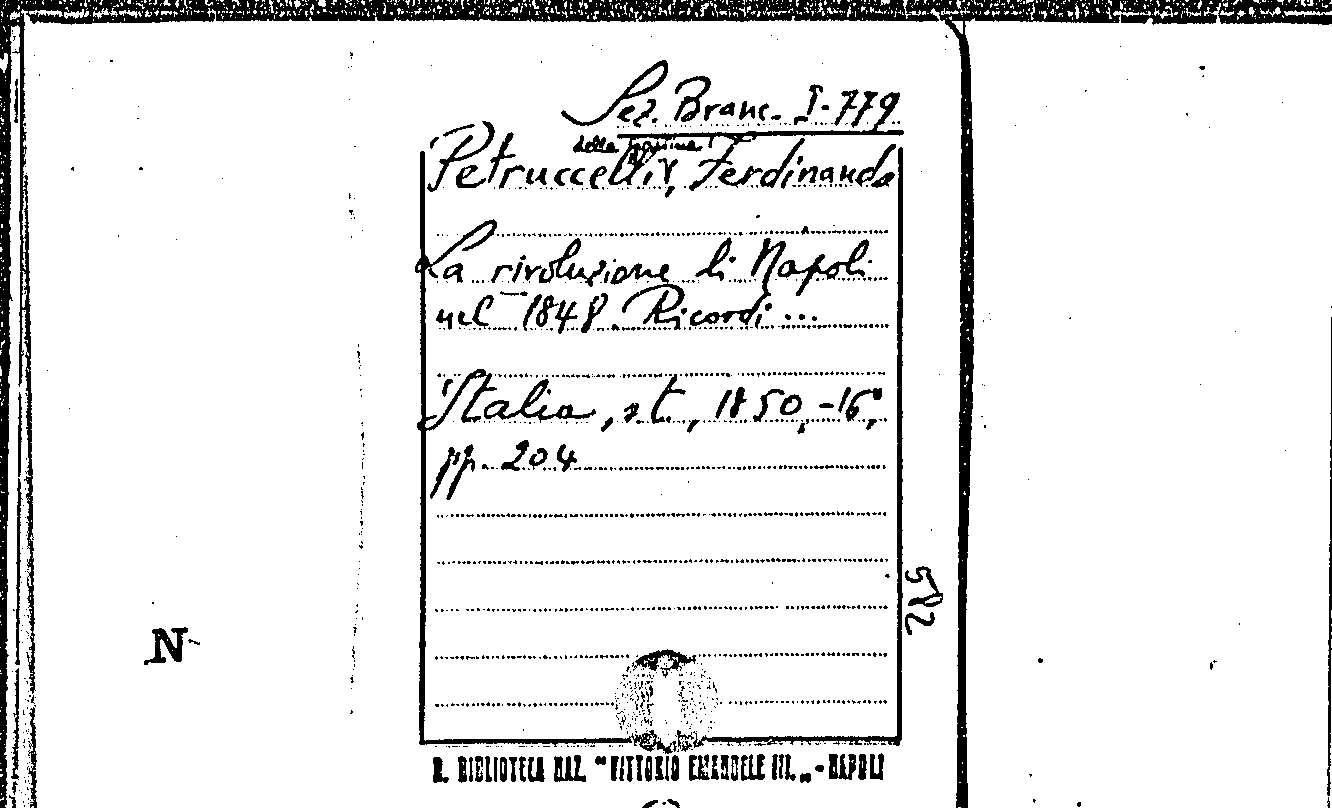 Sez. Branc. I-779
della Gattina
Petruccelli, Ferdinando
La rivoluzione di Napoli
nel 1848. Ricordi ...
Italia, s.t., 1850, -16°,
pp. 204
582
N
R. BIBLIOTECA NAZ. "VITTORIO EMANUELE III." - NAPOLI